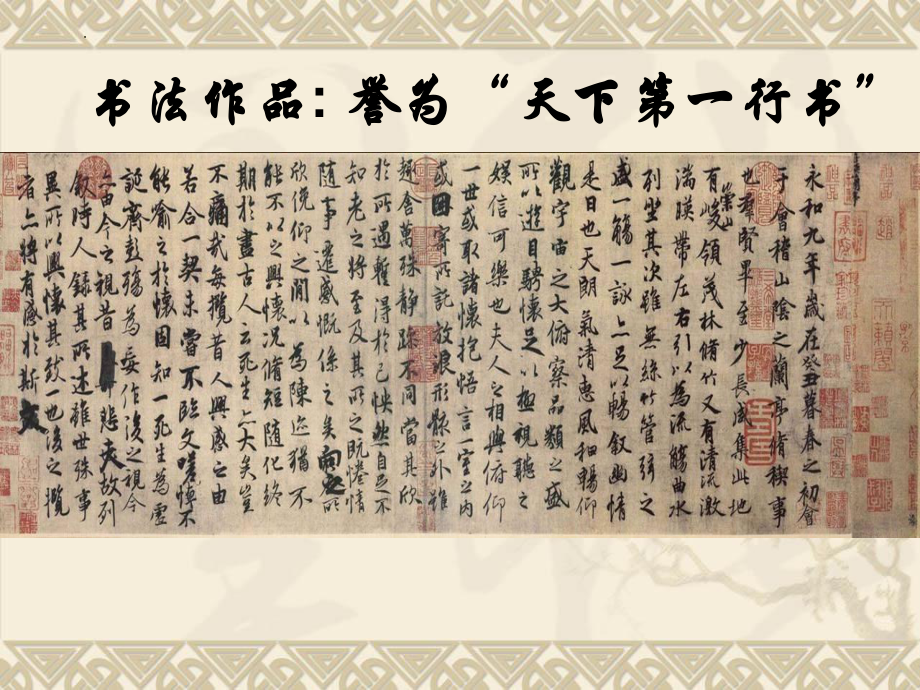 书法作品：誉为“天下第一行书”
永和九年歲在癸丑暮春之初會
于會稽山陰之蘭亭脩稧事
也羣賢畢至少長咸集此地
有崇山峻領茂林脩竹又有清流激
湍暎帶左右引以為流觴曲水
列坐其次雖無絲竹管弦之
盛一觴一詠亦足以暢敘幽情
是日也天朗氣清惠風和暢仰
觀宇宙之大俯察品類之盛
所以遊目騁懷足以極視聽之
娛信可樂也夫人之相與俯仰
一世或取諸懷抱悟言一室之內
或因寄所託放浪形骸之外雖
趣舍萬殊靜躁不同當其欣
於所遇暫得於己怏然自足不
知老之將至及其所之既惓情
隨事遷感慨係之矣向之所
欣俛仰之閒以為陳迹猶不
能不以之興懷況脩短隨化終
期於盡古人云死生亦大矣豈
不痛哉每攬昔人興感之由
若合一契未嘗不臨文嗟悼不
能喻之於懷固知一死生為虛
誕齊彭殤為妄作後之視今
亦由今之視昔悲夫故列
敘時人錄其所述雖世殊事
異所以興懷其致一也後之攬
者亦將有感於斯文